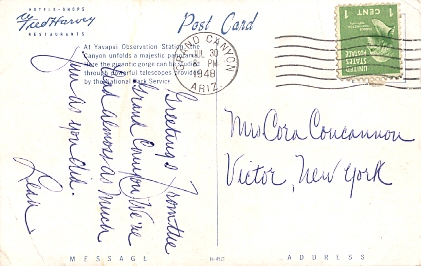 HOTELS · SHOPS
Fred Harvey
RESTAURANTS
Post Card
At Yavapai Observation Station the
Canyon unfolds a majestic panorama.
Here the gigantic gorge can be studied
through powerful telescopes provided
by the National Park Service.
GRAND CANYON
JUL 30
PM
1948
ARIZ.
1¢ 1¢
UNITED
STATES
POSTAGE
Greetings from the
Grand Canyon. We're
had almost as much
fun as you did.
Mrs Cora Concannon
Victor, New York
MESSAGE
ADDRESS